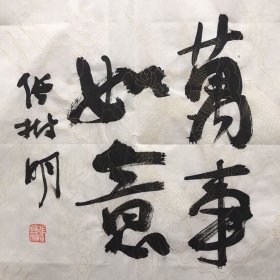 萬事
如意
任樹明